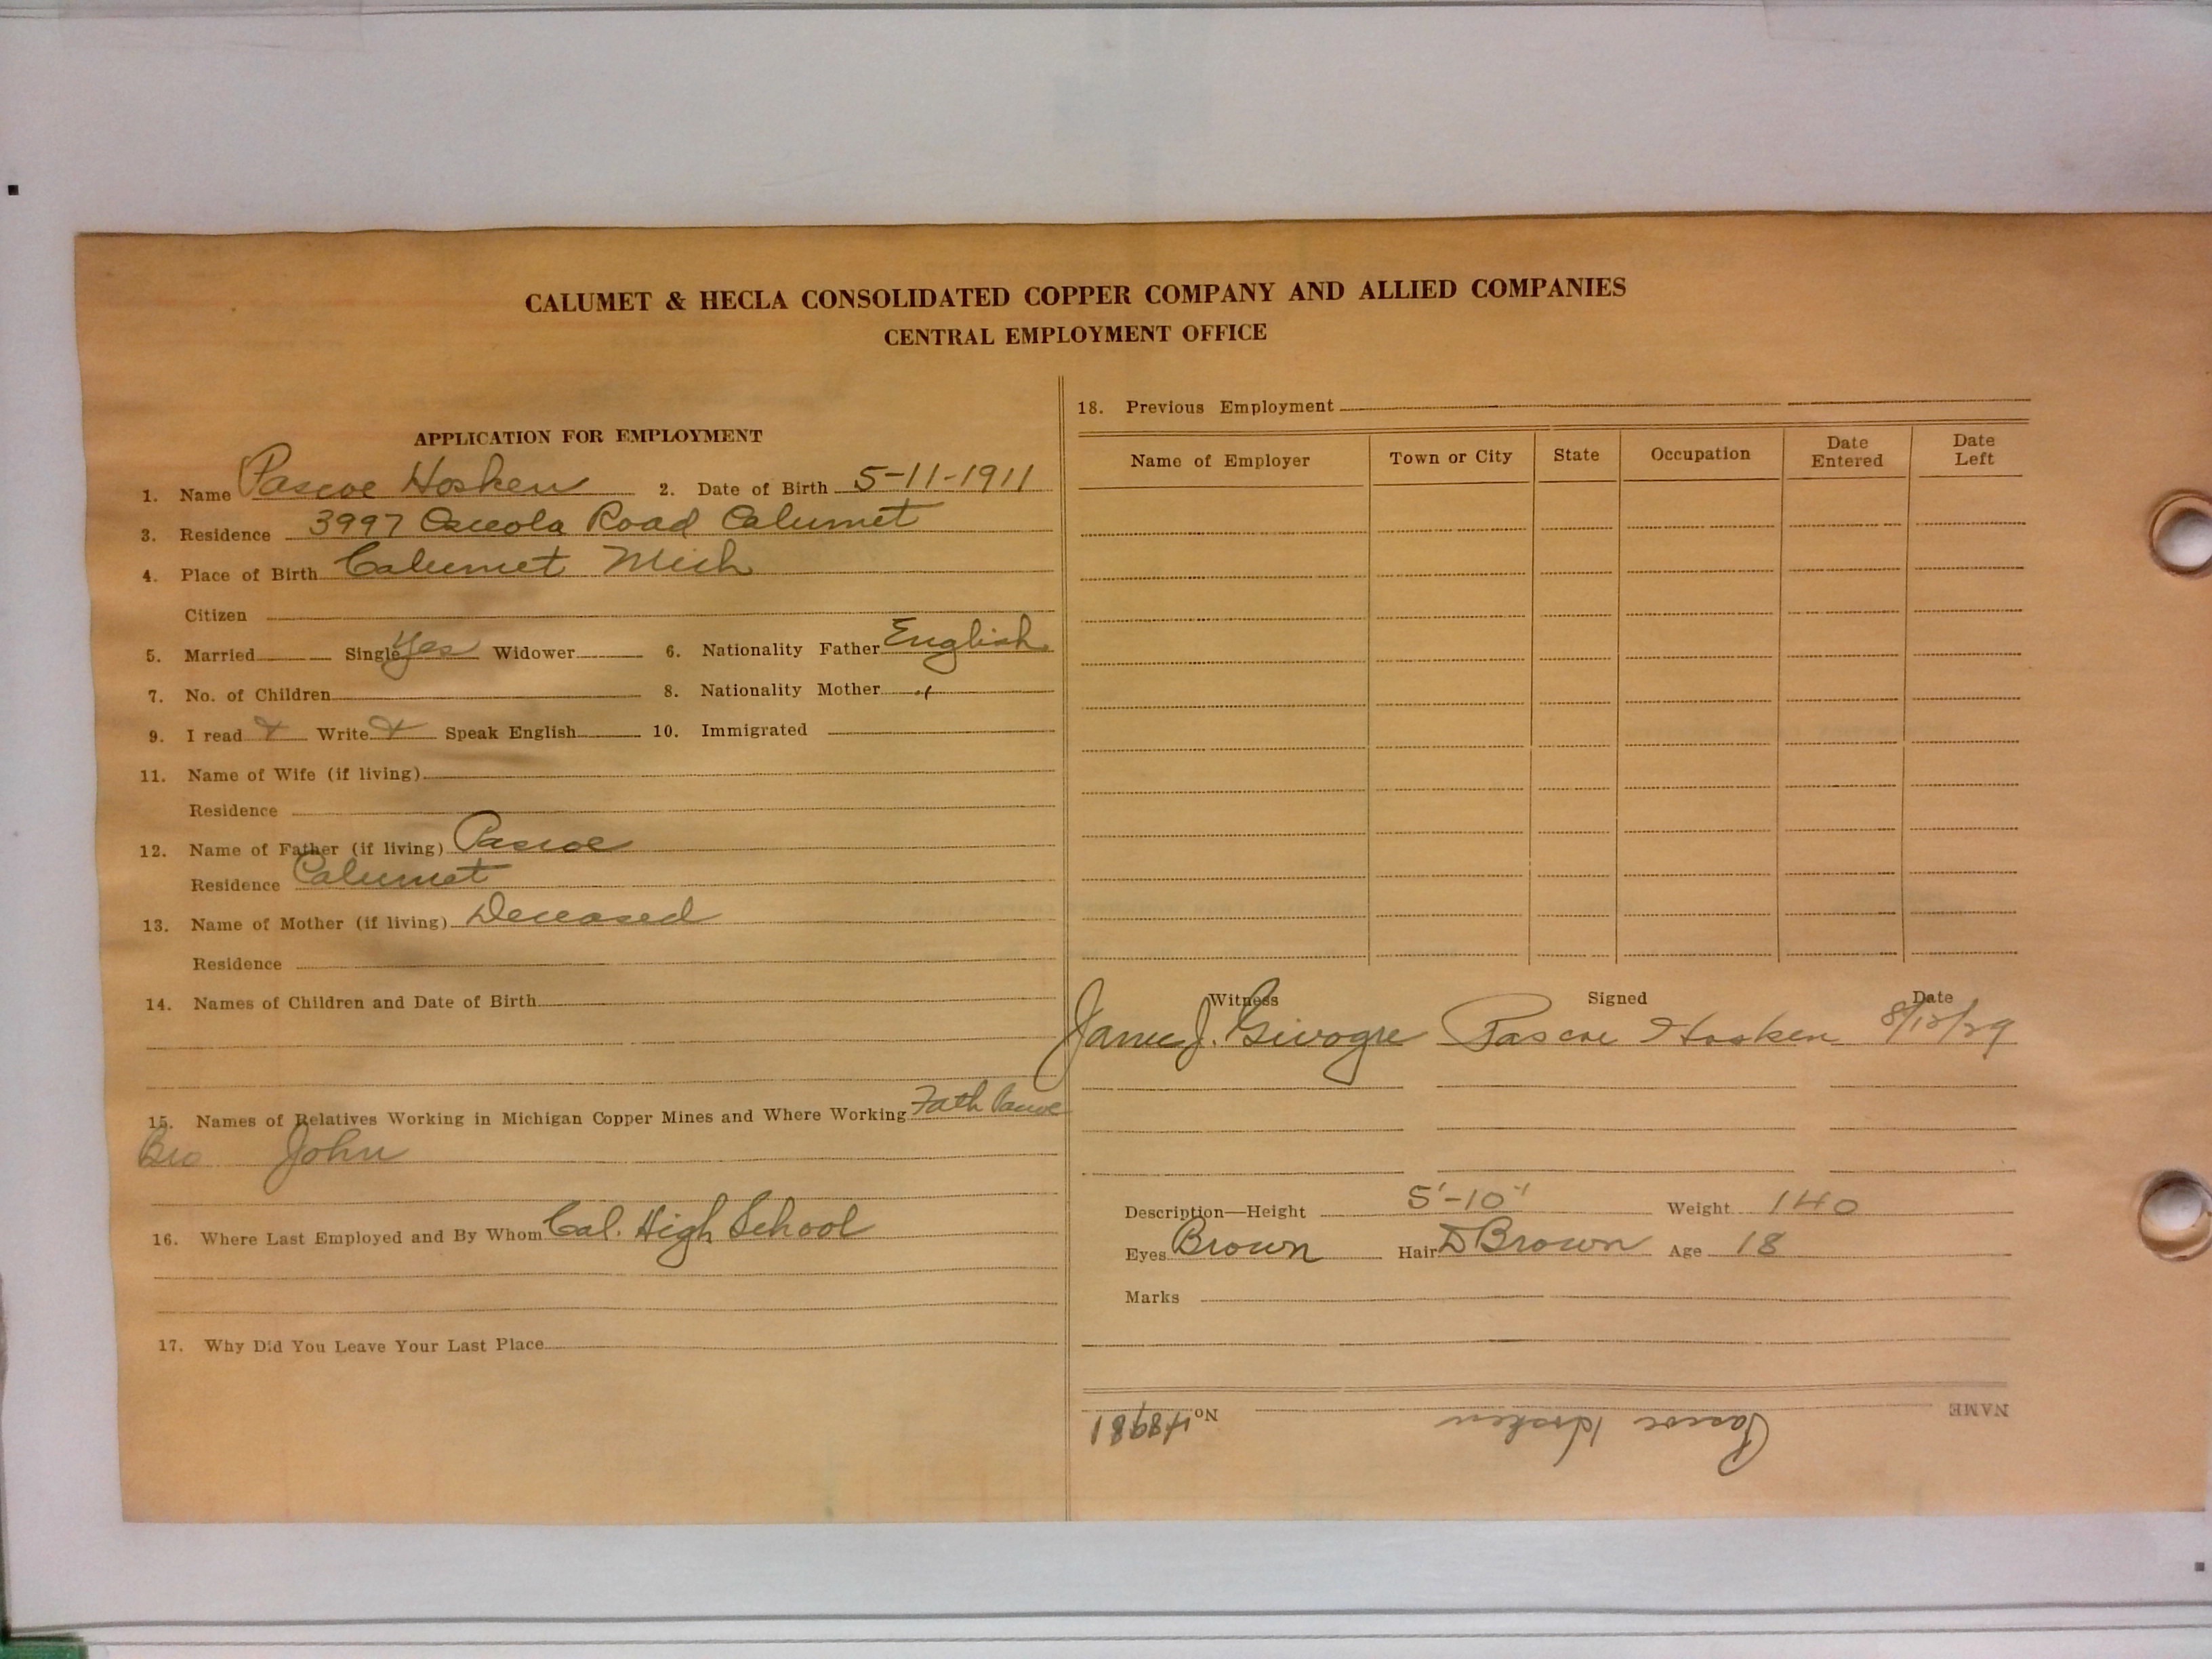 CALUMET & HECLA CONSOLIDATED COPPER COMPANY AND ALLIED COMPANIES
CENTRAL EMPLOYMENT OFFICE
APPLICATION FOR EMPLOYMENT
1. Name Pascoe Hosken 2. Date of Birth 5-11-1911
3. Residence 3997 Osceola Road Calumet
4. Place of Birth Calumet Mich
Citizen
5. Married Single Yes Widower 6. Nationality Father English
7. No. of Children 8. Nationality Mother
9. I read Write Speak English 10. Immigrated
11. Name of Wife (if living)
Residence
12. Name of Father (if living) Pascoe
Residence Calumet
13. Name of Mother (if living) Deceased
Residence
14. Names of Children and Date of Birth
15. Names of Relatives Working in Michigan Copper Mines and Where Working Fath Pascoe
Bro John
16. Where Last Employed and By Whom Cal. High School
17. Why Did You Leave Your Last Place
18. Previous Employment
Name of Employer Town or City State Occupation Date Entered Date Left
Witness Signed Date
James J. Givogre Pascoe Hosken 8/12/29
Description—Height 5'-10" Weight 140
Eyes Brown Hair D Brown Age 18
Marks
NAME Pascoe Hosken No. 48981